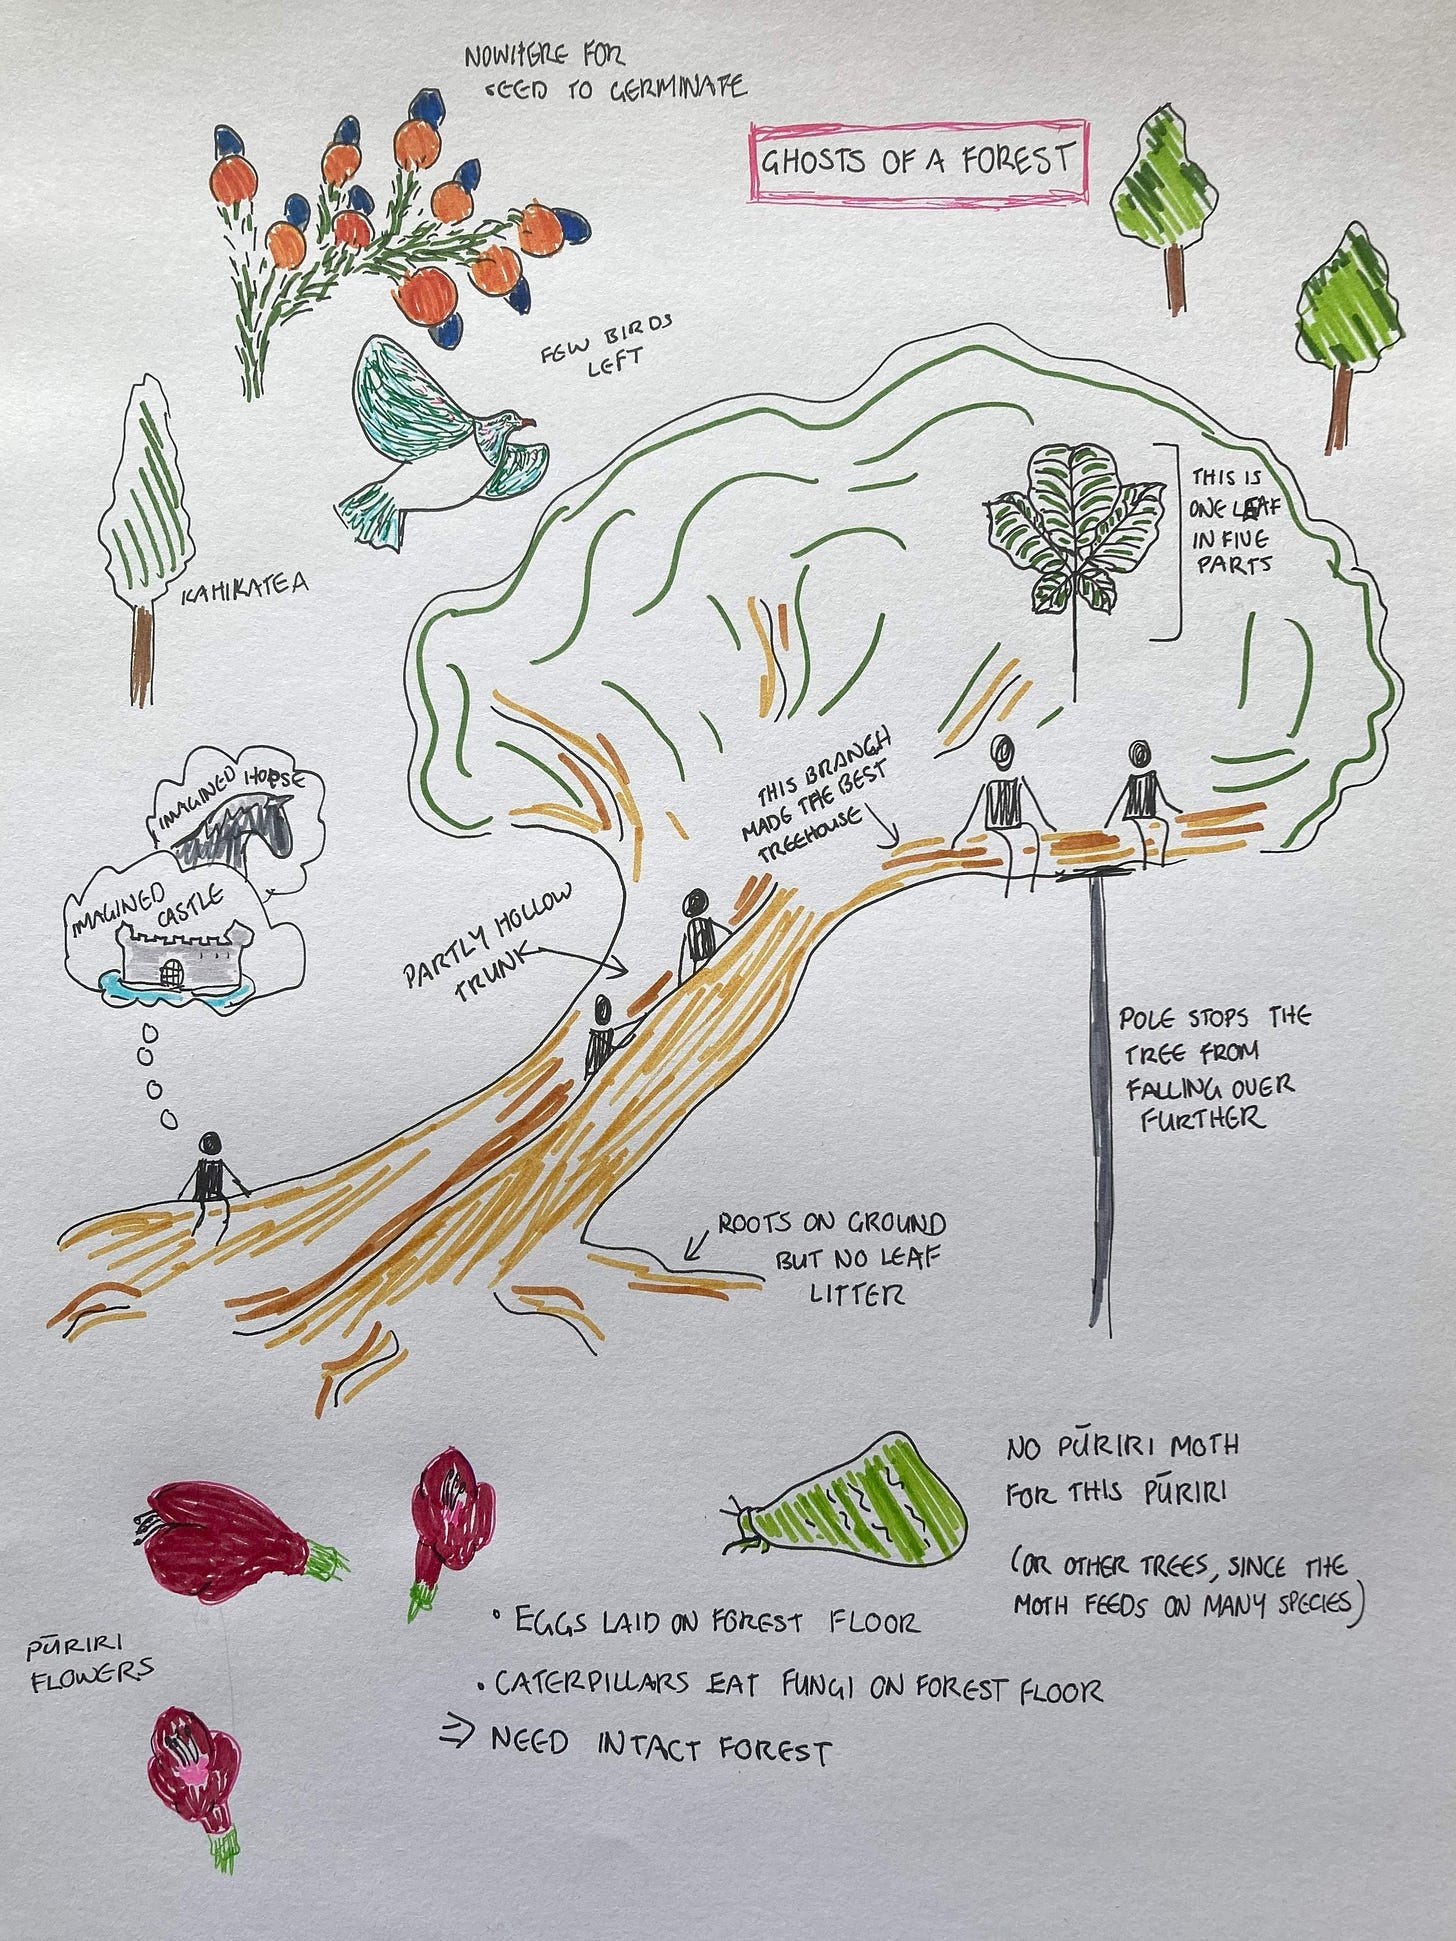 NOWHERE FOR
SEED TO GERMINATE
GHOSTS OF A FOREST
FEW BIRDS
LEFT
THIS IS
ONE LEAF
IN FIVE
PARTS
KAHIKATEA
THIS BRANCH
MADE THE BEST
TREEHOUSE
IMAGINED HORSE
IMAGINED
CASTLE
PARTLY HOLLOW
TRUNK
POLE STOPS THE
TREE FROM
FALLING OVER
FURTHER
ROOTS ON GROUND
BUT NO LEAF
LITTER
NO PŪRIRI MOTH
FOR THIS PŪRIRI
(OR OTHER TREES, SINCE THE
MOTH FEEDS ON MANY SPECIES)
• EGGS LAID ON FOREST FLOOR
• CATERPILLARS EAT FUNGI ON FOREST FLOOR
⇒ NEED INTACT FOREST
PŪRIRI
FLOWERS